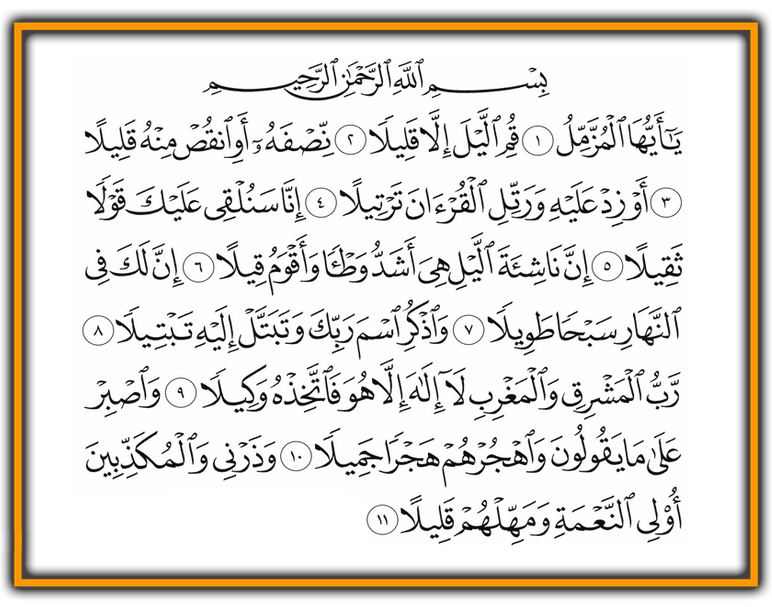 بِسْمِ ٱللَّهِ ٱلرَّحْمَٰنِ ٱلرَّحِيمِ
يَٰٓأَيُّهَا ٱلْمُزَّمِّلُ ١ قُمِ ٱلَّيْلَ إِلَّا قَلِيلًا ٢ نِّصْفَهُۥٓ أَوِ ٱنقُصْ مِنْهُ قَلِيلًا
٣ أَوْ زِدْ عَلَيْهِ وَرَتِّلِ ٱلْقُرْءَانَ تَرْتِيلًا ٤ إِنَّا سَنُلْقِى عَلَيْكَ قَوْلًا
ثَقِيلًا ٥ إِنَّ نَاشِئَةَ ٱلَّيْلِ هِىَ أَشَدُّ وَطْـًٔا وَأَقْوَمُ قِيلًا ٦ إِنَّ لَكَ فِى
ٱلنَّهَارِ سَبْحًا طَوِيلًا ٧ وَٱذْكُرِ ٱسْمَ رَبِّكَ وَتَبَتَّلْ إِلَيْهِ تَبْتِيلًا ٨
رَّبُّ ٱلْمَشْرِقِ وَٱلْمَغْرِبِ لَآ إِلَٰهَ إِلَّا هُوَ فَٱتَّخِذْهُ وَكِيلًا ٩ وَٱصْبِرْ
عَلَىٰ مَا يَقُولُونَ وَٱهْجُرْهُمْ هَجْرًا جَمِيلًا ١٠ وَذَرْنِى وَٱلْمُكَذِّبِينَ
أُو۟لِى ٱلنَّعْمَةِ وَمَهِّلْهُمْ قَلِيلًا ١١